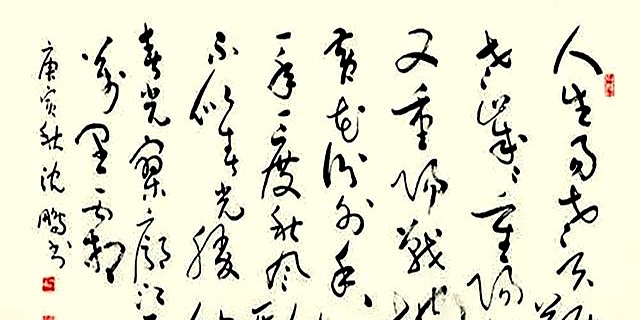 人生易老天难
老岁岁重阳
又重阳战地
黄花分外香
一年一度秋风劲
不似春光胜似
春光寥廓江天
万里霜
庚寅秋沈鹏书